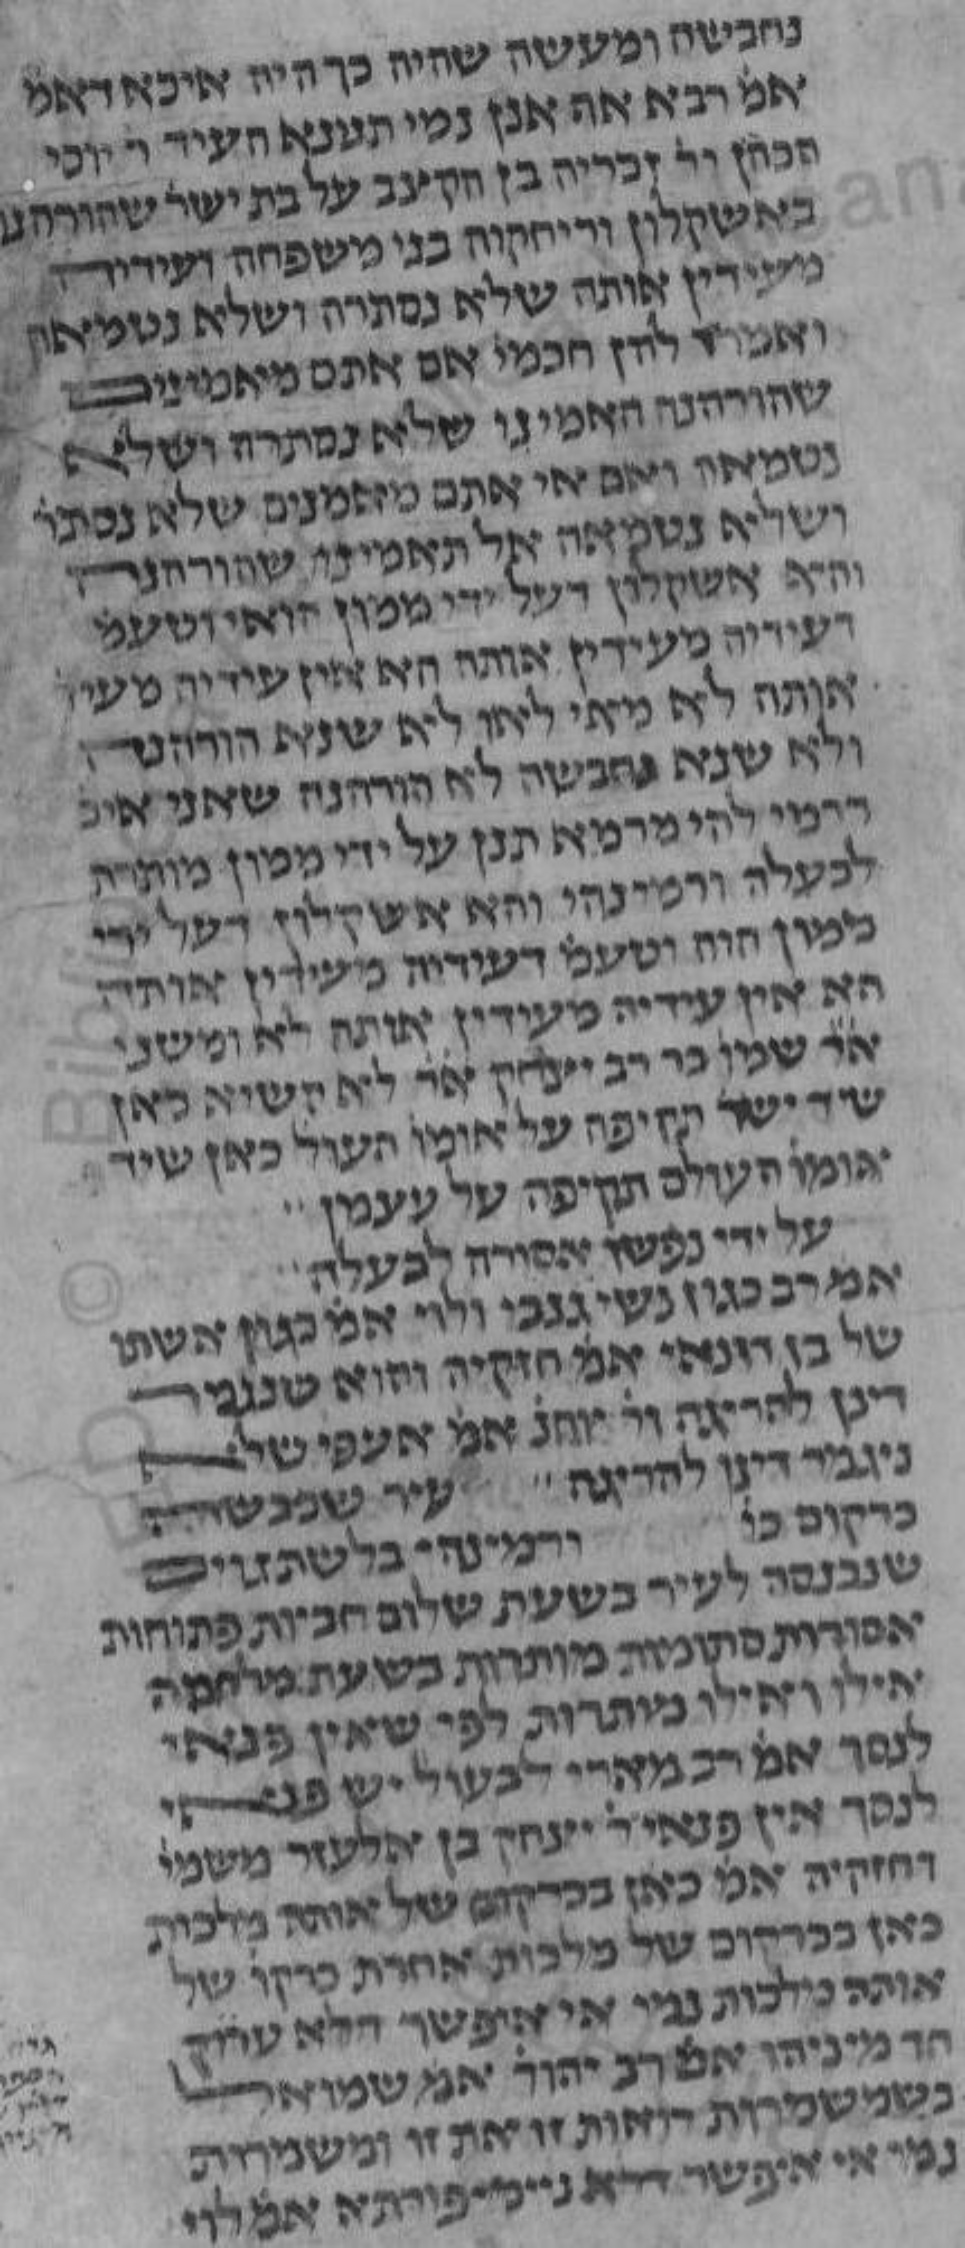 נחבשה ומעשה שהיה כך היה איכא דאמ
אמ רבא אה אנן נמי תנינא העיד ר יוסי
הכהן ור זכריה בן הקצב על בת ישר שהורהנ
באשקלון וריחקוה בני משפחה ועידיה
מעידין אותה שלא נסתרה ושלא נטמאה
ואמרו להן חכמי אם אתם מיאמינים
שהורהנה האמינו שלא נסתרה ושלא
נטמאה ואם אי אתם מאמנים שלא נסתר
ושלא נטמאה אל תאמינו שהורהנה
והא אשקלון דעל ידי ממון הואי וטעמ
דעידיה מעידין אותה הא אין עידיה מעיד
אותה לא מאי לאו לא שנא הורהנה
ולא שנא נחבשה לא הורהנה שאני איכ
דרמי להי מרמא תנן על ידי ממון מותרת
לבעלה ורמינהי והא אשקלון דעל ידי
ממון הוה וטעמ דעידיה מעידין אותה
הא אין עידיה מעידין אותה לא ומשני
אר שמו בר רב יצחק אר לא קשיא כאן
שיד ישר תקיפה על אומו העול כאן שיד
אומו העולם תקיפה על עצמן
על ידי נפשו אסורה לבעלה
אמ רב כגון נשי גנבי ולוי אמ כגון אשתו
של בן דונאי אמ חזקיה והוא שנגמר
דינן להריגה ור יוחנ אמ אעפי שלא
ניגמר דינן להריגה עיר שכבשה
כרקום כו ורמינהי בלשת גוים
שנכנסה לעיר בשעת שלום חביות פתוחות
אסורות סתומות מותרות בשעת מלחמה
אילו ואילו מותרות לפי שאין פנאי
לנסך אמ רב מארי לבעול יש פנאי
לנסך אין פנאי ר יצחק בן אלעזר משמי
דחזקיה אמ כאן בכרקום של אותה מלכות
כאן בכרקום של מלכות אחרת כרקו של
אותה מלכות נמי אי איפשר דלא ערוק
חד מיניהו אמ רב יהוד אמ שמואל
בשמשמרות רואות זו את זו ומשמרות
נמי אי איפשר דלא ניימי פורתא אמ לוי